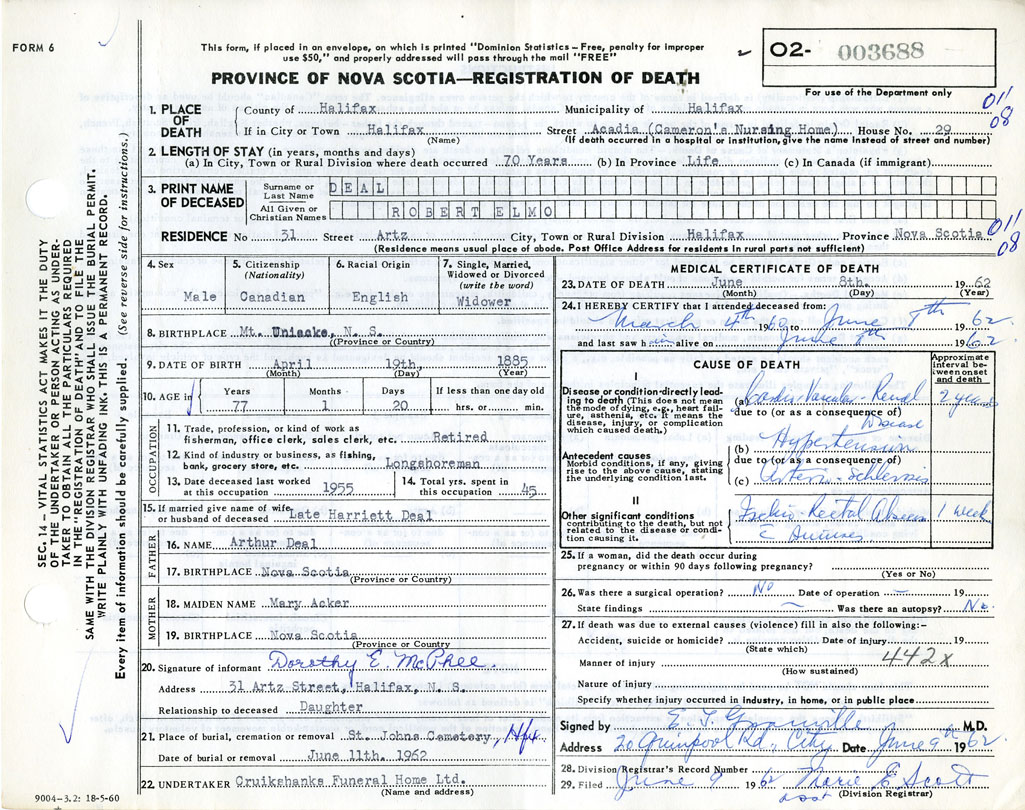 FORM 6
This form, if placed in an envelope, on which is printed "Dominion Statistics – Free, penalty for improper
use $50," and properly addressed will pass through the mail "FREE"
PROVINCE OF NOVA SCOTIA—REGISTRATION OF DEATH
O2- 003688
For use of the Department only
011
08
1. PLACE OF DEATH { County of Halifax Municipality of Halifax
If in City or Town Halifax Street Acadia (Cameron's Nursing Home) House No. 29
(Name) (If death occurred in a hospital or institution, give the name instead of street and number)
2. LENGTH OF STAY (in years, months and days)
(a) In City, Town or Rural Division where death occurred 70 Years (b) In Province Life (c) In Canada (if immigrant)
3. PRINT NAME OF DECEASED { Surname or Last Name DEAL
All Given or Christian Names ROBERT ELMO
RESIDENCE No 31 Street Artz City, Town or Rural Division Halifax Province Nova Scotia
011
08
(Residence means usual place of abode. Post Office Address for residents in rural parts not sufficient)
4. Sex Male
5. Citizenship (Nationality) Canadian
6. Racial Origin English
7. Single, Married, Widowed or Divorced (write the word) Widower
8. BIRTHPLACE Mt. Uniacke, N. S.
(Province or Country)
9. DATE OF BIRTH April 19th, 1885
(Month) (Day) (Year)
10. AGE in Years 77 Months 1 Days 20 If less than one day old hrs. or min.
OCCUPATION
11. Trade, profession, or kind of work as
fisherman, office clerk, sales clerk, etc. Retired
12. Kind of industry or business, as fishing,
bank, grocery store, etc. Longshoreman
13. Date deceased last worked at this occupation 1955
14. Total yrs. spent in this occupation 45
15. If married give name of wife or husband of deceased Late Harriett Deal
FATHER
16. NAME Arthur Deal
17. BIRTHPLACE Nova Scotia
(Province or Country)
MOTHER
18. MAIDEN NAME Mary Acker
19. BIRTHPLACE Nova Scotia
(Province or Country)
20. Signature of informant Dorothy E. McPhee.
Address 31 Artz Street, Halifax, N. S.
Relationship to deceased Daughter
21. Place of burial, cremation or removal St. Johns Cemetery, Hfx.
Date of burial or removal June 11th. 1962
22. UNDERTAKER Cruikshanks Funeral Home Ltd.
(Name and address)
9004-3.2: 18-5-60
MEDICAL CERTIFICATE OF DEATH
23. DATE OF DEATH June 8th. 1962
(Month) (Day) (Year)
24. I HEREBY CERTIFY that I attended deceased from:
March 4th 1960 to June 8th 1962
and last saw him alive on June 8th 1962
CAUSE OF DEATH
Approximate interval between onset and death
I
Disease or condition directly leading to death (This does not mean the mode of dying, e.g., heart failure, asthenia, etc. It means the disease, injury, or complication which caused death.)
(a) Cardio-Vascular-Renal Disease 2 years
due to (or as a consequence of)
Antecedent causes
Morbid conditions, if any, giving rise to the above cause, stating the underlying condition last.
(b) Hypertension
due to (or as a consequence of)
(c) Arterio-Schlerosis
II
Other significant conditions
contributing to the death, but not related to the disease or condition causing it.
Ischio-Rectal Abscess 1 week
25. If a woman, did the death occur during
pregnancy or within 90 days following pregnancy?
(Yes or No)
26. Was there a surgical operation? No Date of operation – 19
State findings – Was there an autopsy? No.
27. If death was due to external causes (violence) fill in also the following:–
Accident, suicide or homicide? Date of injury 19
(State which)
Manner of injury 442X
(How sustained)
Nature of injury
Specify whether injury occurred in industry, in home, or in public place
Signed by E. F. Granville M.D.
Address 20 Quinpool Rd., City. Date June 9th 1962.
28. Division Registrar's Record Number
29. Filed June 9 1962 Marie E. Scott
asst (Division Registrar)
SEC. 14 – VITAL STATISTICS ACT MAKES IT THE DUTY
OF THE UNDERTAKER OR PERSON ACTING AS UNDER-
TAKER TO OBTAIN ALL THE PARTICULARS REQUIRED
IN THE "REGISTRATION OF DEATH" AND TO FILE THE
SAME WITH THE DIVISION REGISTRAR WHO SHALL ISSUE THE BURIAL PERMIT.
WRITE PLAINLY WITH UNFADING INK. THIS IS A PERMANENT RECORD.
Every item of information should be carefully supplied. (See reverse side for instructions.)